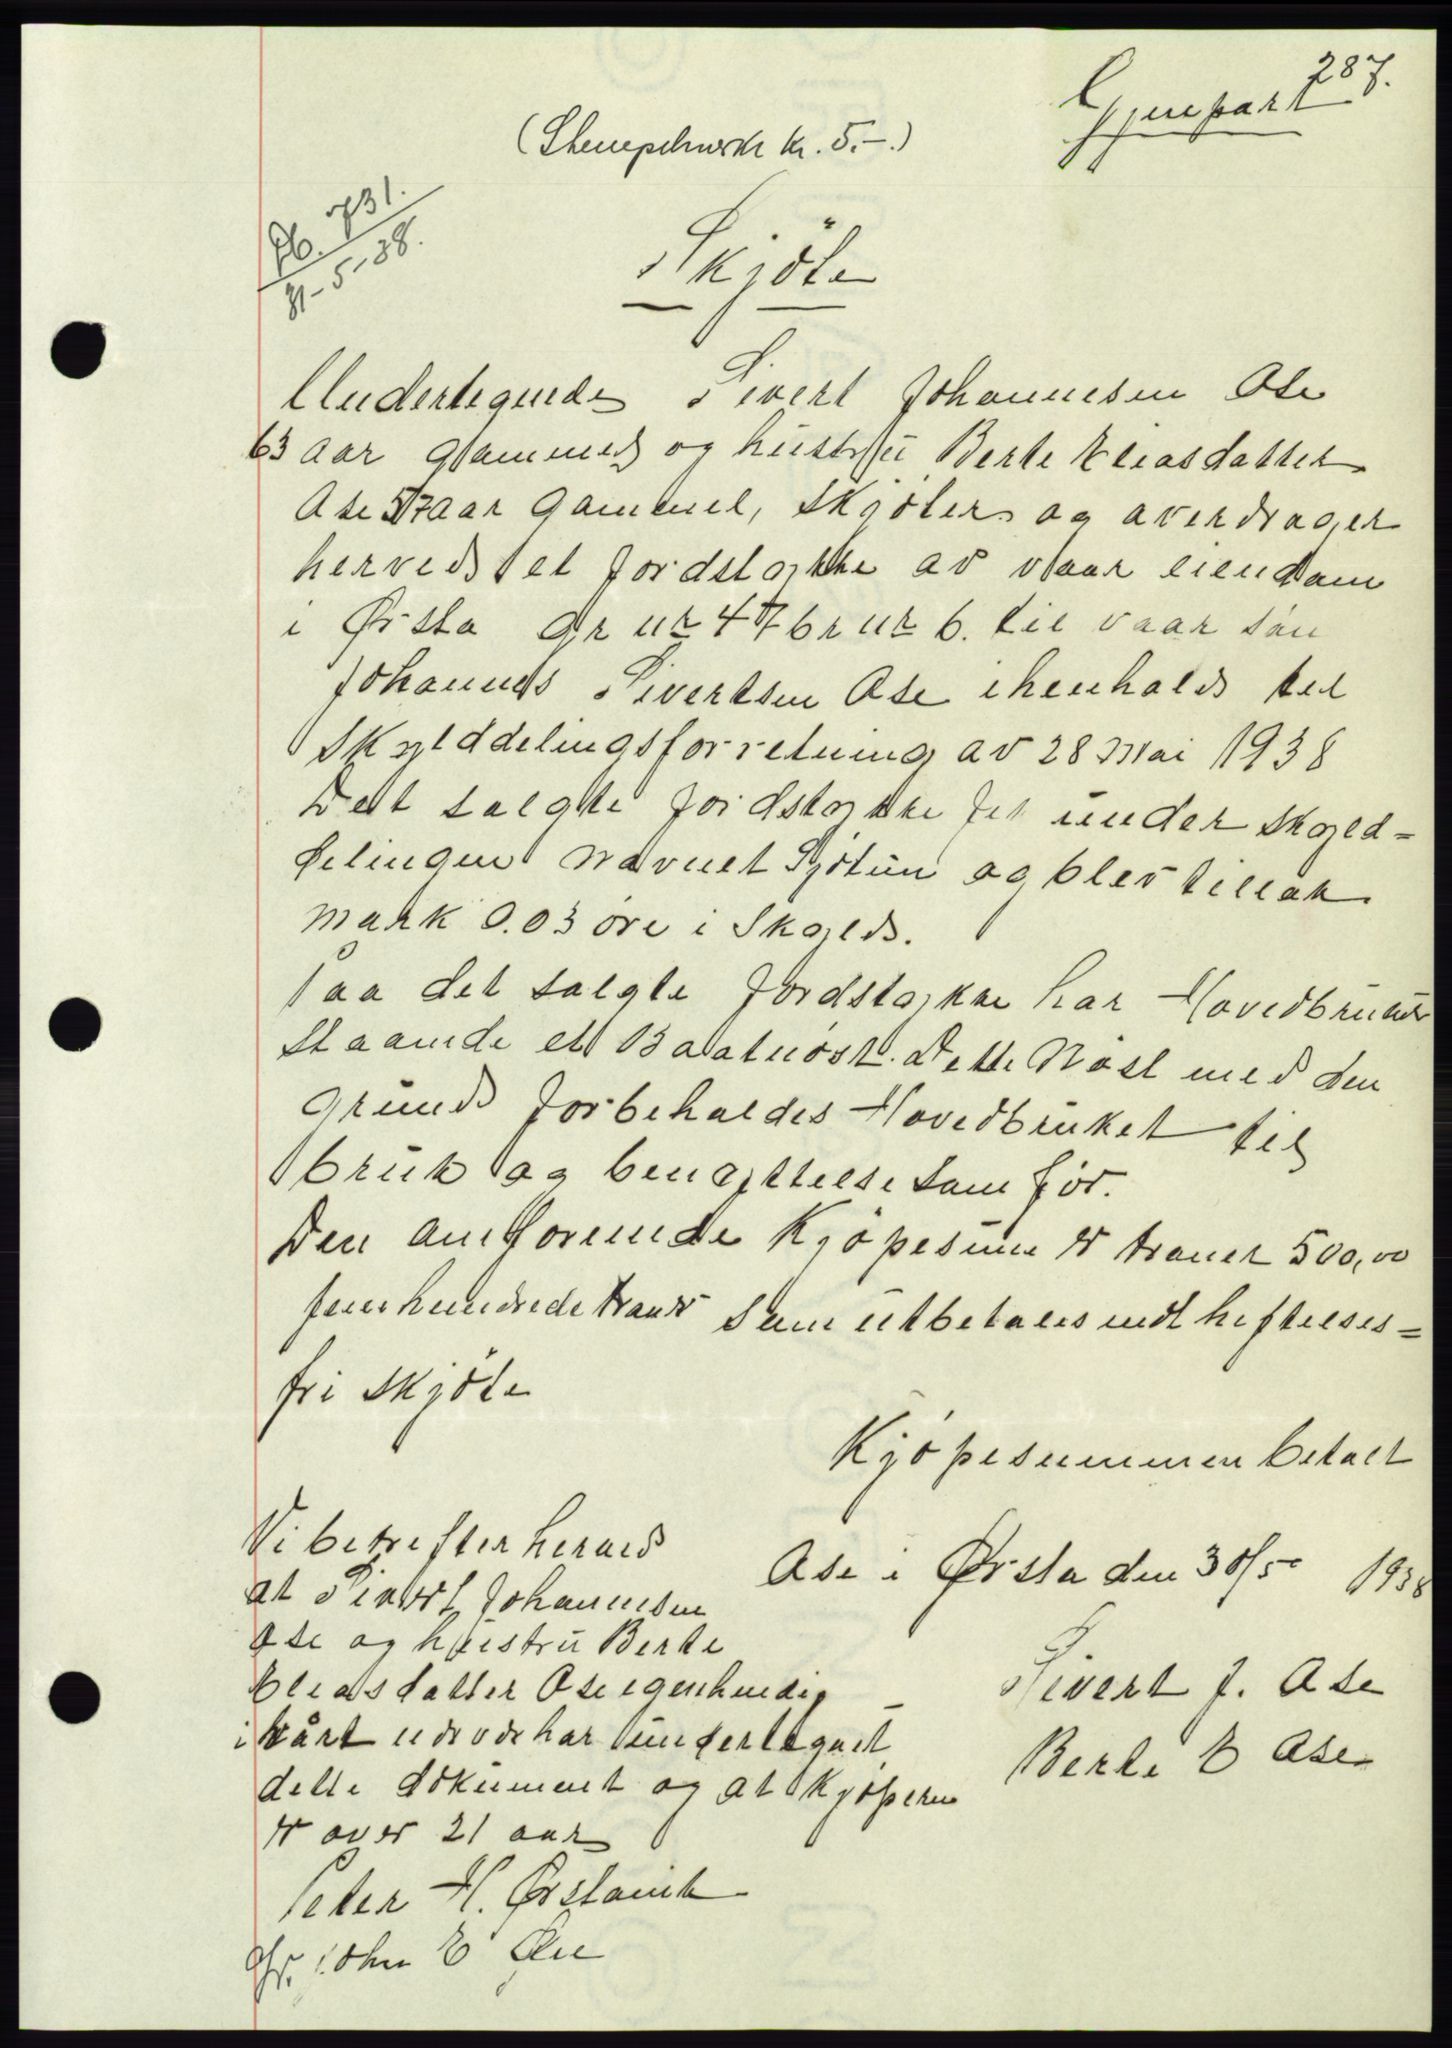 287.
Gjenpart
(Stempelmerk kr. 5.-.)
Db. 731.
31-5-38.
Skjöte
Undertegnede Sivert Johannesen Ose
63 aar gammel og hustru Berte Eliasdatter
Ose 57 aar gammel, Skjöter og averdrager
herved et Jordstykke av vaar eiendom
i Ørsta gr nr 47 br nr 6. til vaar sön
Johannes Sivertsen Ose ihenhold til
Skylddelingsforretning av 28 Mai 1938
Det solgte jordstykke fik under skyld=
delingen Navnet Sjötun og blev tillagt
mark 0.03 öre i Skyld.
Paa det solgte Jordstykke har Hovedbruket
Staaende et Baatnöst. Dette Nöst med den
grund forbeholdes Hovedbruket til
bruk og benyttelse som för.
Den omforenede Kjöpesum er kroner 500,00
femhundrede kroner som utbetales mot heftelses=
fri skjöte
Kjöpesummen betalt
Ose i Ørsta den 30/5 1938
Sivert J. Ose
Berte E Ose
Vi bekrefter herved
at Sivert Johannesen
Ose og hustru Berte
Eliasdatter Ose egenhendig
i vårt nærvær har undertegnet
dette dokument og at Kjöperen
er over 21 aar
Peter H. Ørstavik
John E